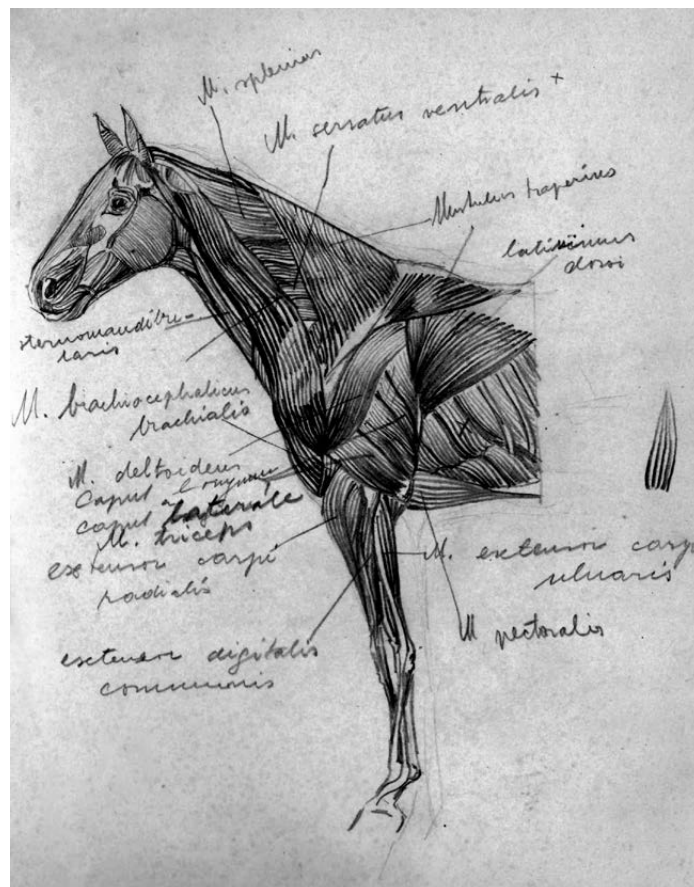 M. splenius
M. serratus ventralis +
Muskulus trapezius
latissimus
dorsi
sternomandibu-
laris
M. brachiocephalicus
brachialis
M. deltoideus
Caput longum
caput laterale
M. triceps
extensor carpi
radialis
M. extensor carpi
ulnaris
M pectoralis
extensor digitalis
communis